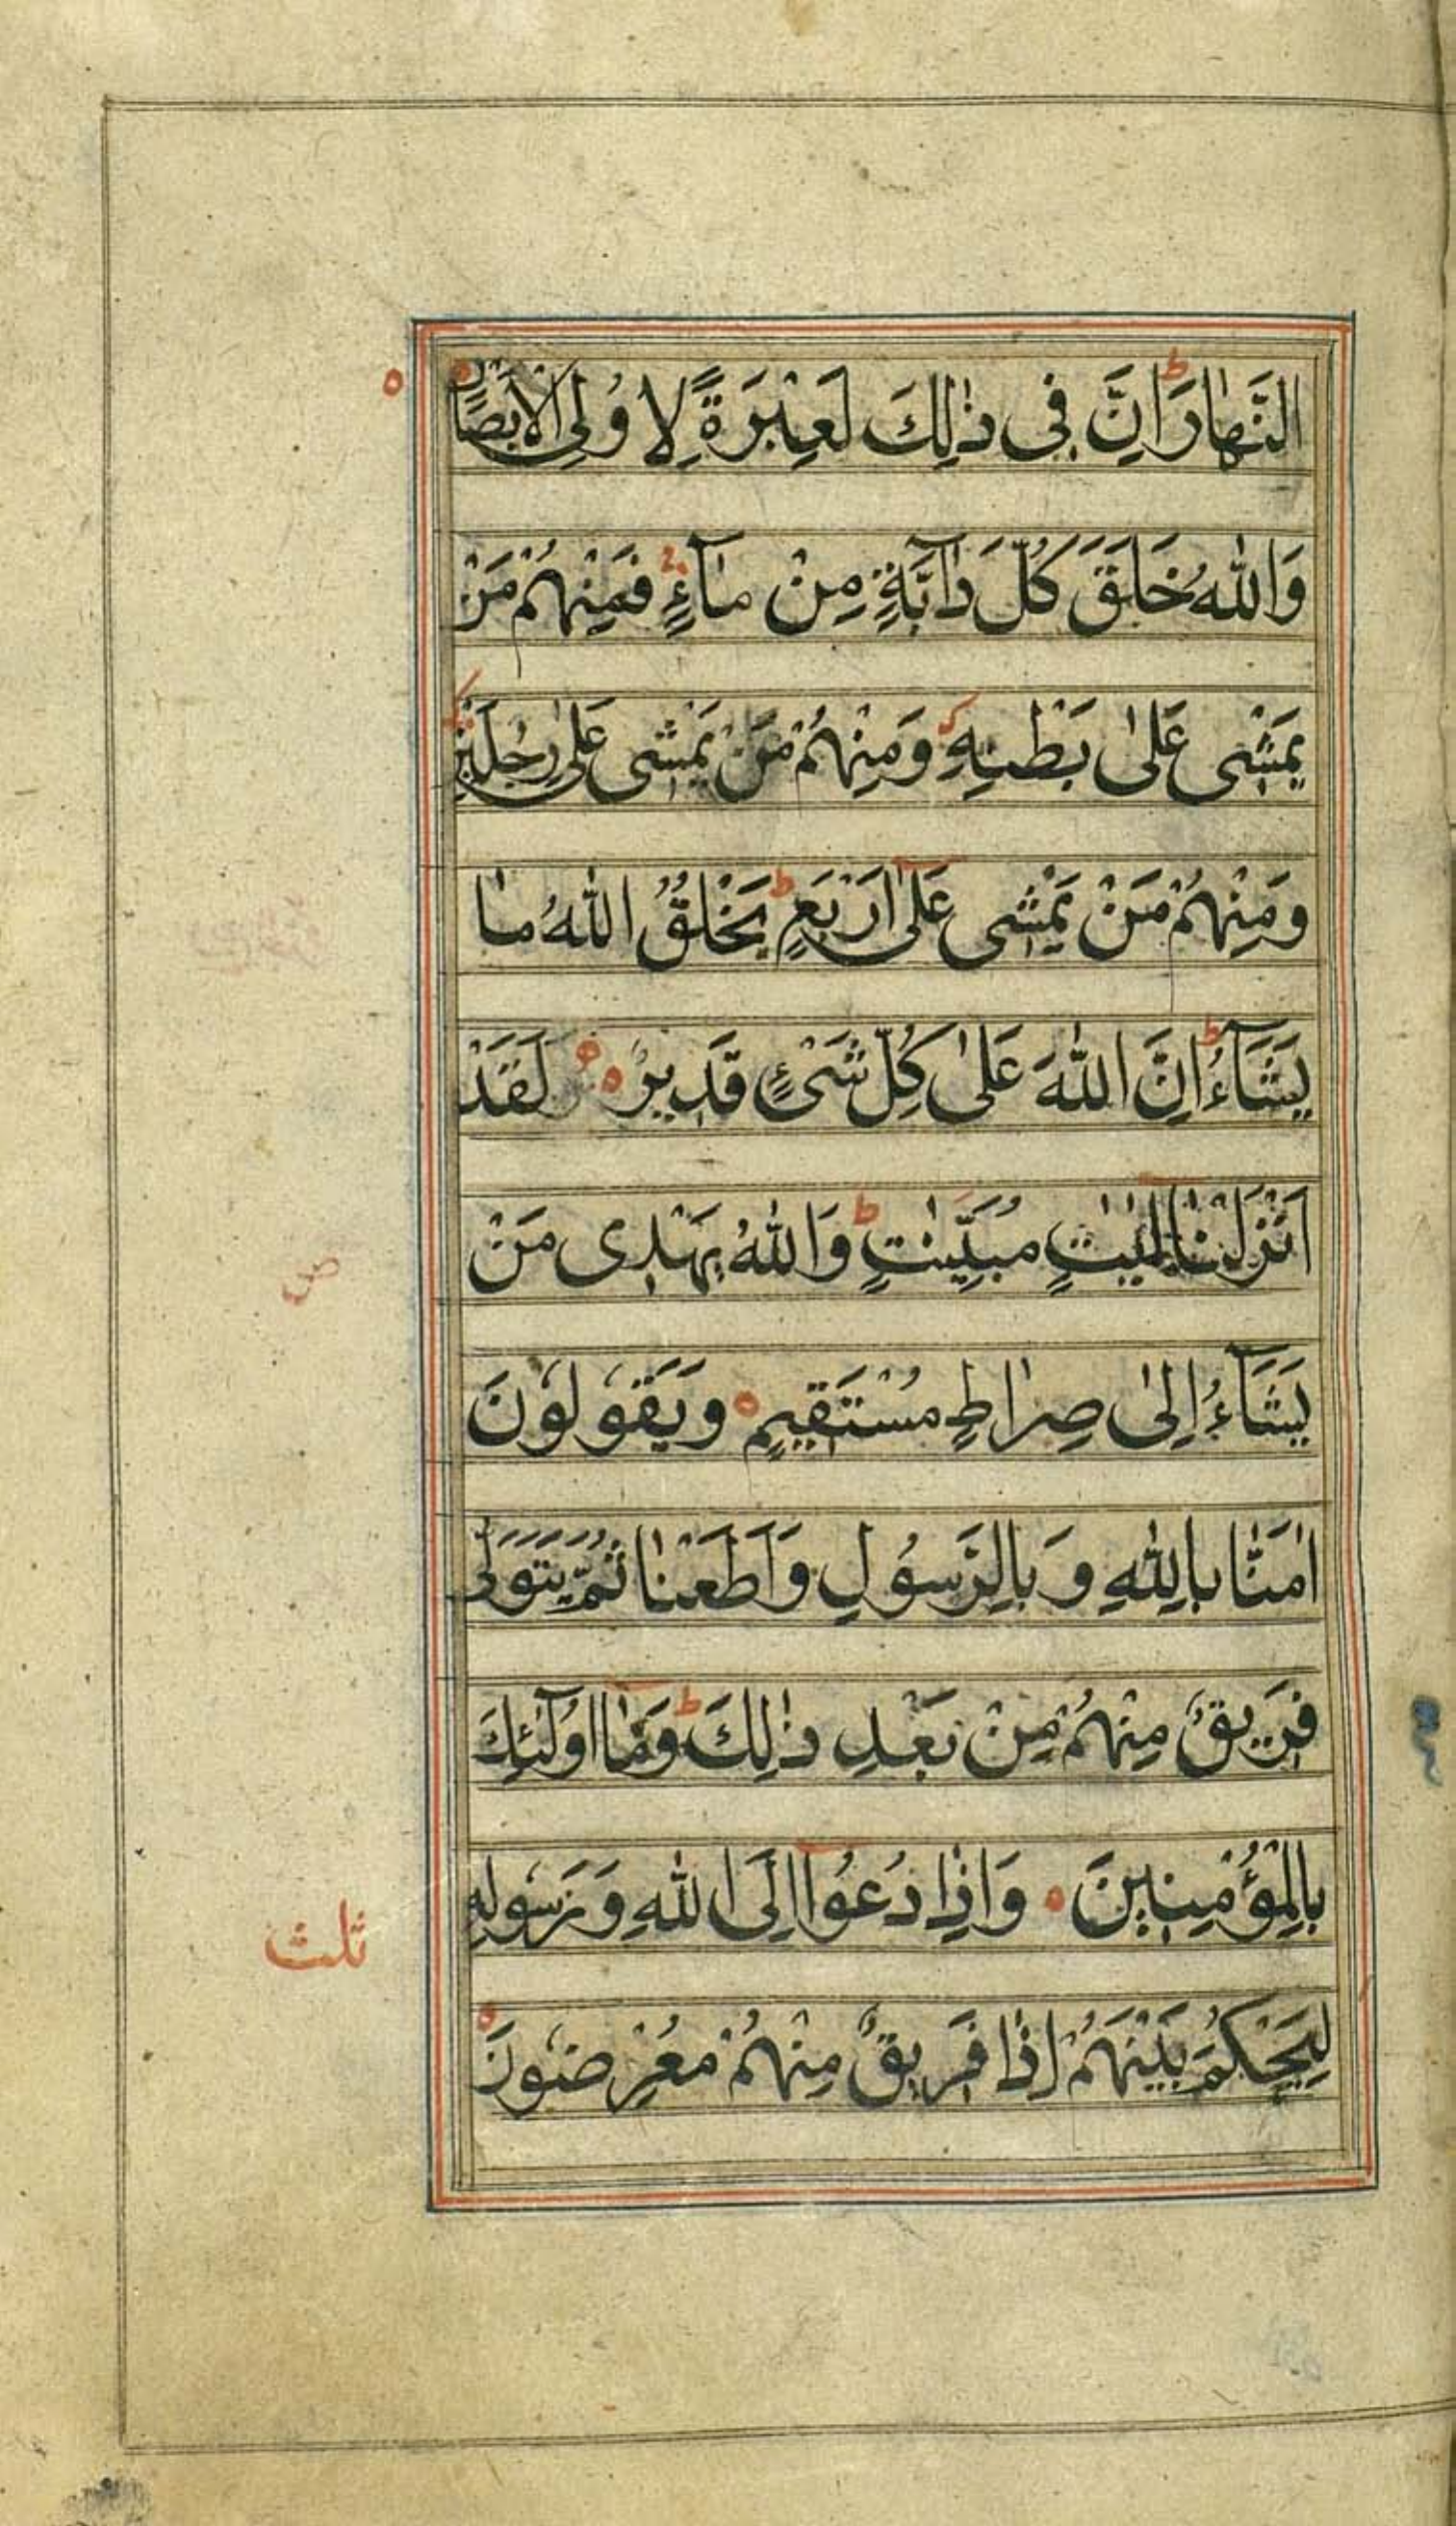 النَّهَارَ اِنَّ فِى ذٰلِكَ لَعِبْرَةً لِاُولِى الْاَبْصَارِ
وَاللّٰهُ خَلَقَ كُلَّ دَآبَّةٍ مِنْ مَآءٍ فَمِنْهُمْ مَنْ
يَمْشِى عَلٰى بَطْنِهِ وَمِنْهُمْ مَنْ يَمْشِى عَلٰى رِجْلَيْنِ
وَمِنْهُمْ مَنْ يَمْشِى عَلٰى اَرْبَعٍ ط يَخْلُقُ اللّٰهُ مَا
يَشَآءُ ط اِنَّ اللّٰهَ عَلٰى كُلِّ شَىْءٍ قَدِيرٌ ه لَقَدْ
اَنْزَلْنَا اٰيٰتٍ مُبَيِّنٰتٍ ط وَاللّٰهُ يَهْدِى مَنْ
يَشَآءُ اِلٰى صِرَاطٍ مُسْتَقِيمٍ ه وَيَقُولُونَ
اٰمَنَّا بِاللّٰهِ وَبِالرَّسُولِ وَاَطَعْنَا ثُمَّ يَتَوَلّٰى
فَرِيقٌ مِنْهُمْ مِنْ بَعْدِ ذٰلِكَ ط وَمَا اُولٰٓئِكَ
بِالْمُؤْمِنِينَ ه وَاِذَا دُعُوا اِلَى اللّٰهِ وَرَسُولِهِ
ثلث
لِيَحْكُمَ بَيْنَهُمْ اِذَا فَرِيقٌ مِنْهُمْ مُعْرِضُونَ ه